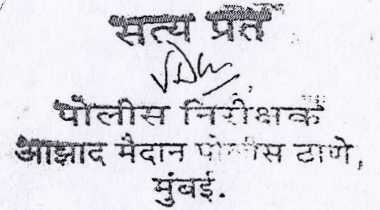 सत्य प्रत
पोलीस निरीक्षक
आझाद मैदान पोलीस ठाणे,
मुंबई.